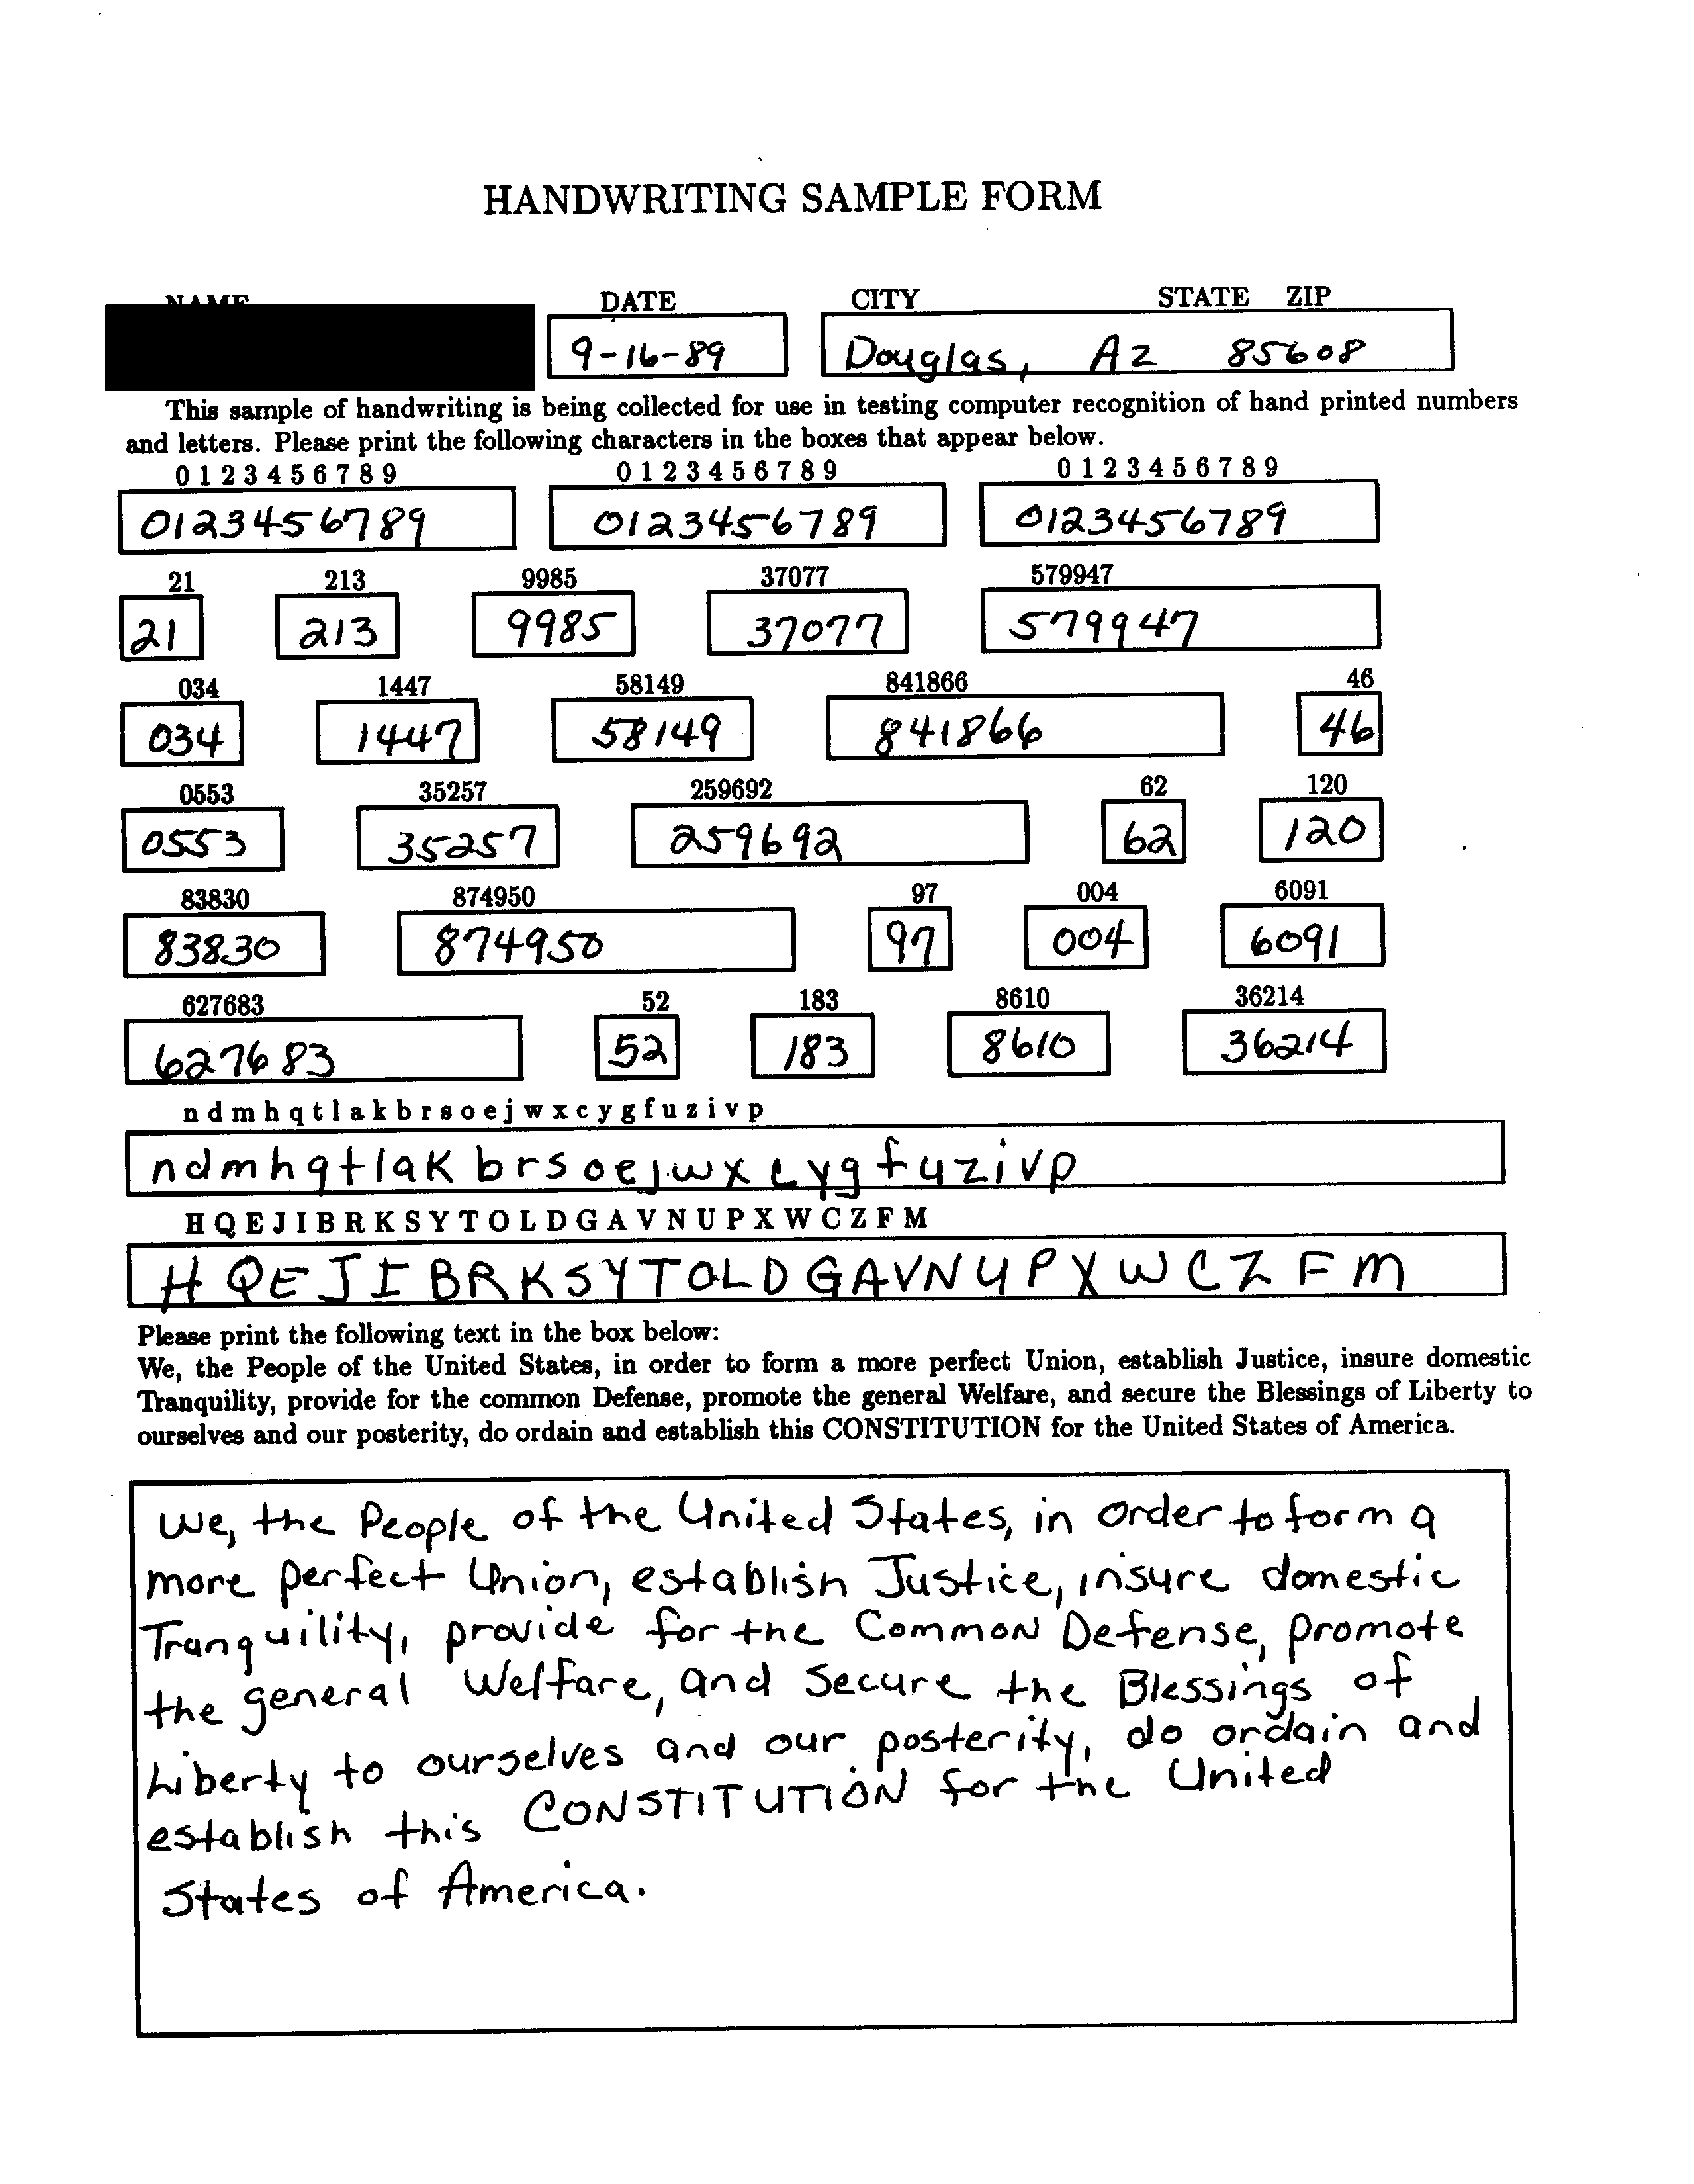 HANDWRITING SAMPLE FORM
NAME DATE CITY STATE ZIP
9-16-89 Douglas, Az 85608
This sample of handwriting is being collected for use in testing computer recognition of hand printed numbers
and letters. Please print the following characters in the boxes that appear below.
0 1 2 3 4 5 6 7 8 9 0 1 2 3 4 5 6 7 8 9 0 1 2 3 4 5 6 7 8 9
0123456789 0123456789 0123456789
21 213 9985 37077 579947
21 213 9985 37077 579947
034 1447 58149 841866 46
034 1447 58149 841866 46
0553 35257 259692 62 120
0553 35257 259692 62 120
83830 874950 97 004 6091
83830 874950 97 004 6091
627683 52 183 8610 36214
627683 52 183 8610 36214
n d m h q t l a k b r s o e j w x c y g f u z i v p
ndmhqtlaK brsoejwxcygfuzivp
H Q E J I B R K S Y T O L D G A V N U P X W C Z F M
H QEJIBRKSYTOLDGAVNUPXWCZFM
Please print the following text in the box below:
We, the People of the United States, in order to form a more perfect Union, establish Justice, insure domestic
Tranquility, provide for the common Defense, promote the general Welfare, and secure the Blessings of Liberty to
ourselves and our posterity, do ordain and establish this CONSTITUTION for the United States of America.
We, the People of the United States, in order to form a
more perfect Union, establish Justice, insure domestic
Tranquility, provide for the Common Defense, promote
the general Welfare, and Secure the Blessings of
Liberty to ourselves and our posterity, do ordain and
establish this CONSTITUTION for the United
States of America.